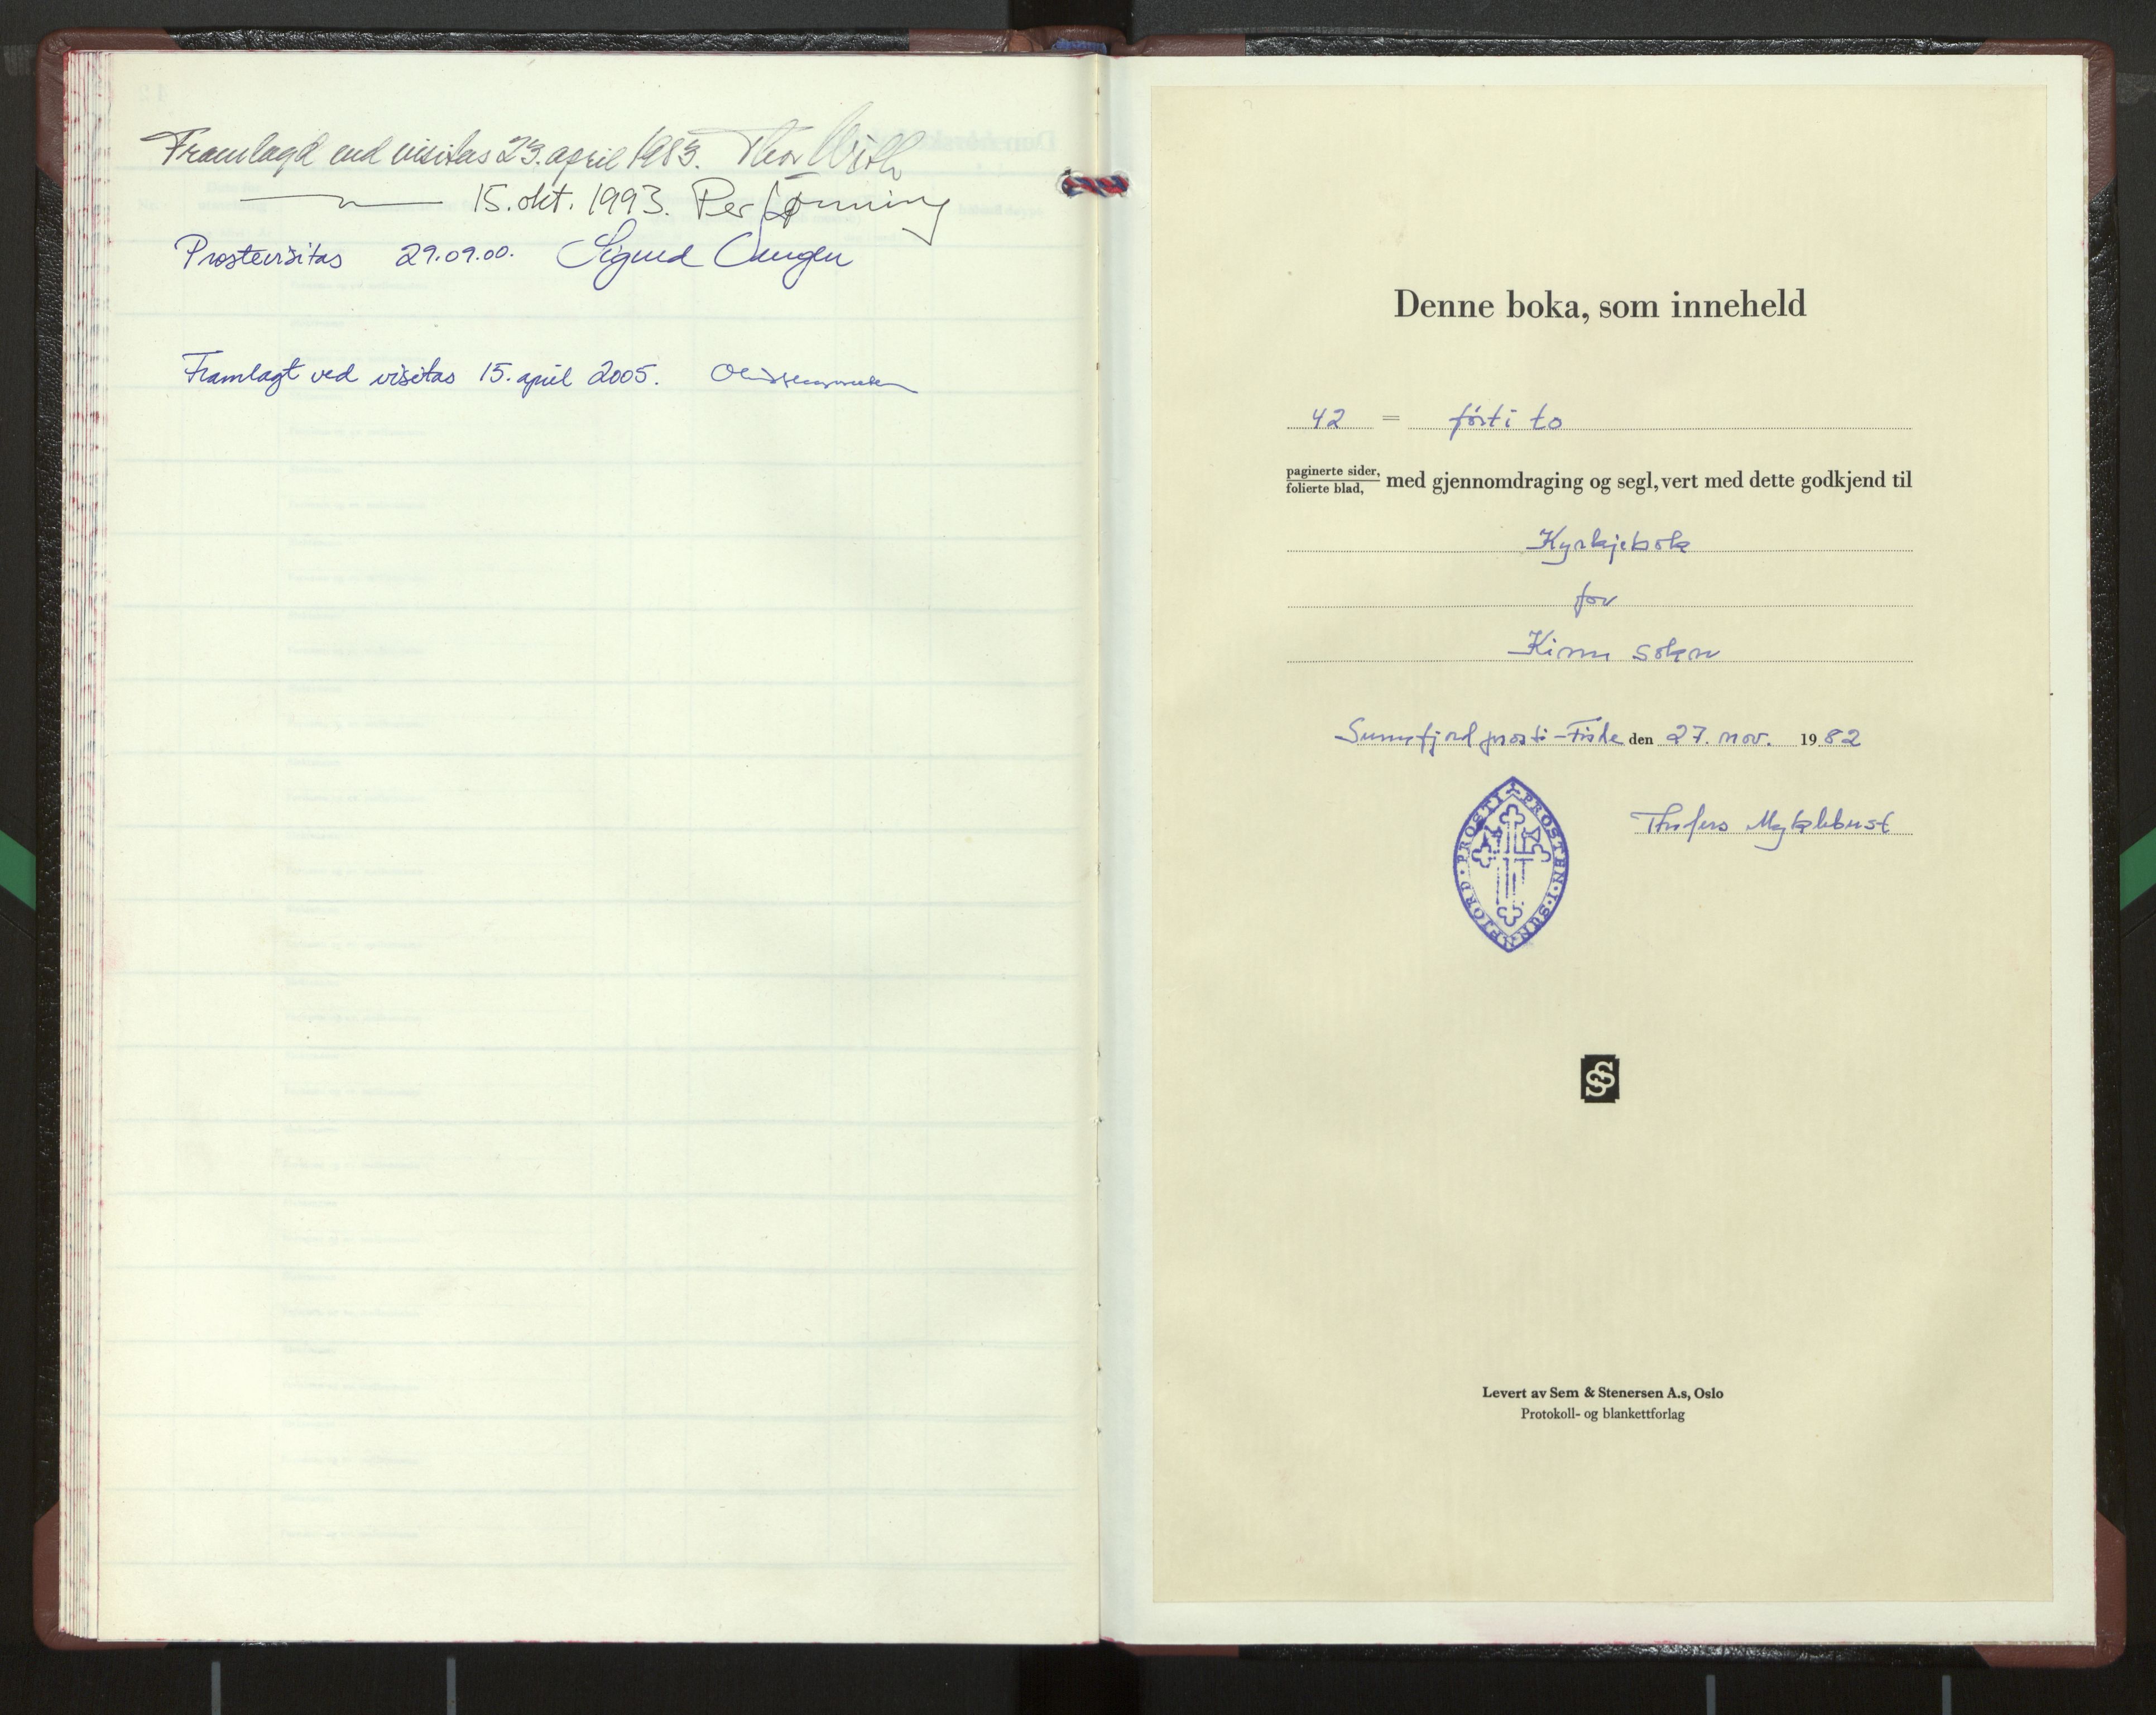 Framlagd ved visitas 23. april 1983. Thor With
—〃— 15. okt. 1993. Per Lønning
Prostevisitas 29.09.00. Sigurd
Framlagt ved visitas 15. april 2005.
Denne boka, som inneheld
42 = førti to
paginerte sider,
folierte blad, med gjennomdraging og segl, vert med dette godkjend til
Kyrkjebok
for
Kinn sokn
Sunnfjord prosti - Fisle den 27. nov. 1982
PROSTEN · I · SUNNFJORD · PROSTI
Myklebust
SS
Levert av Sem & Stenersen A.s, Oslo
Protokoll- og blankettforlag